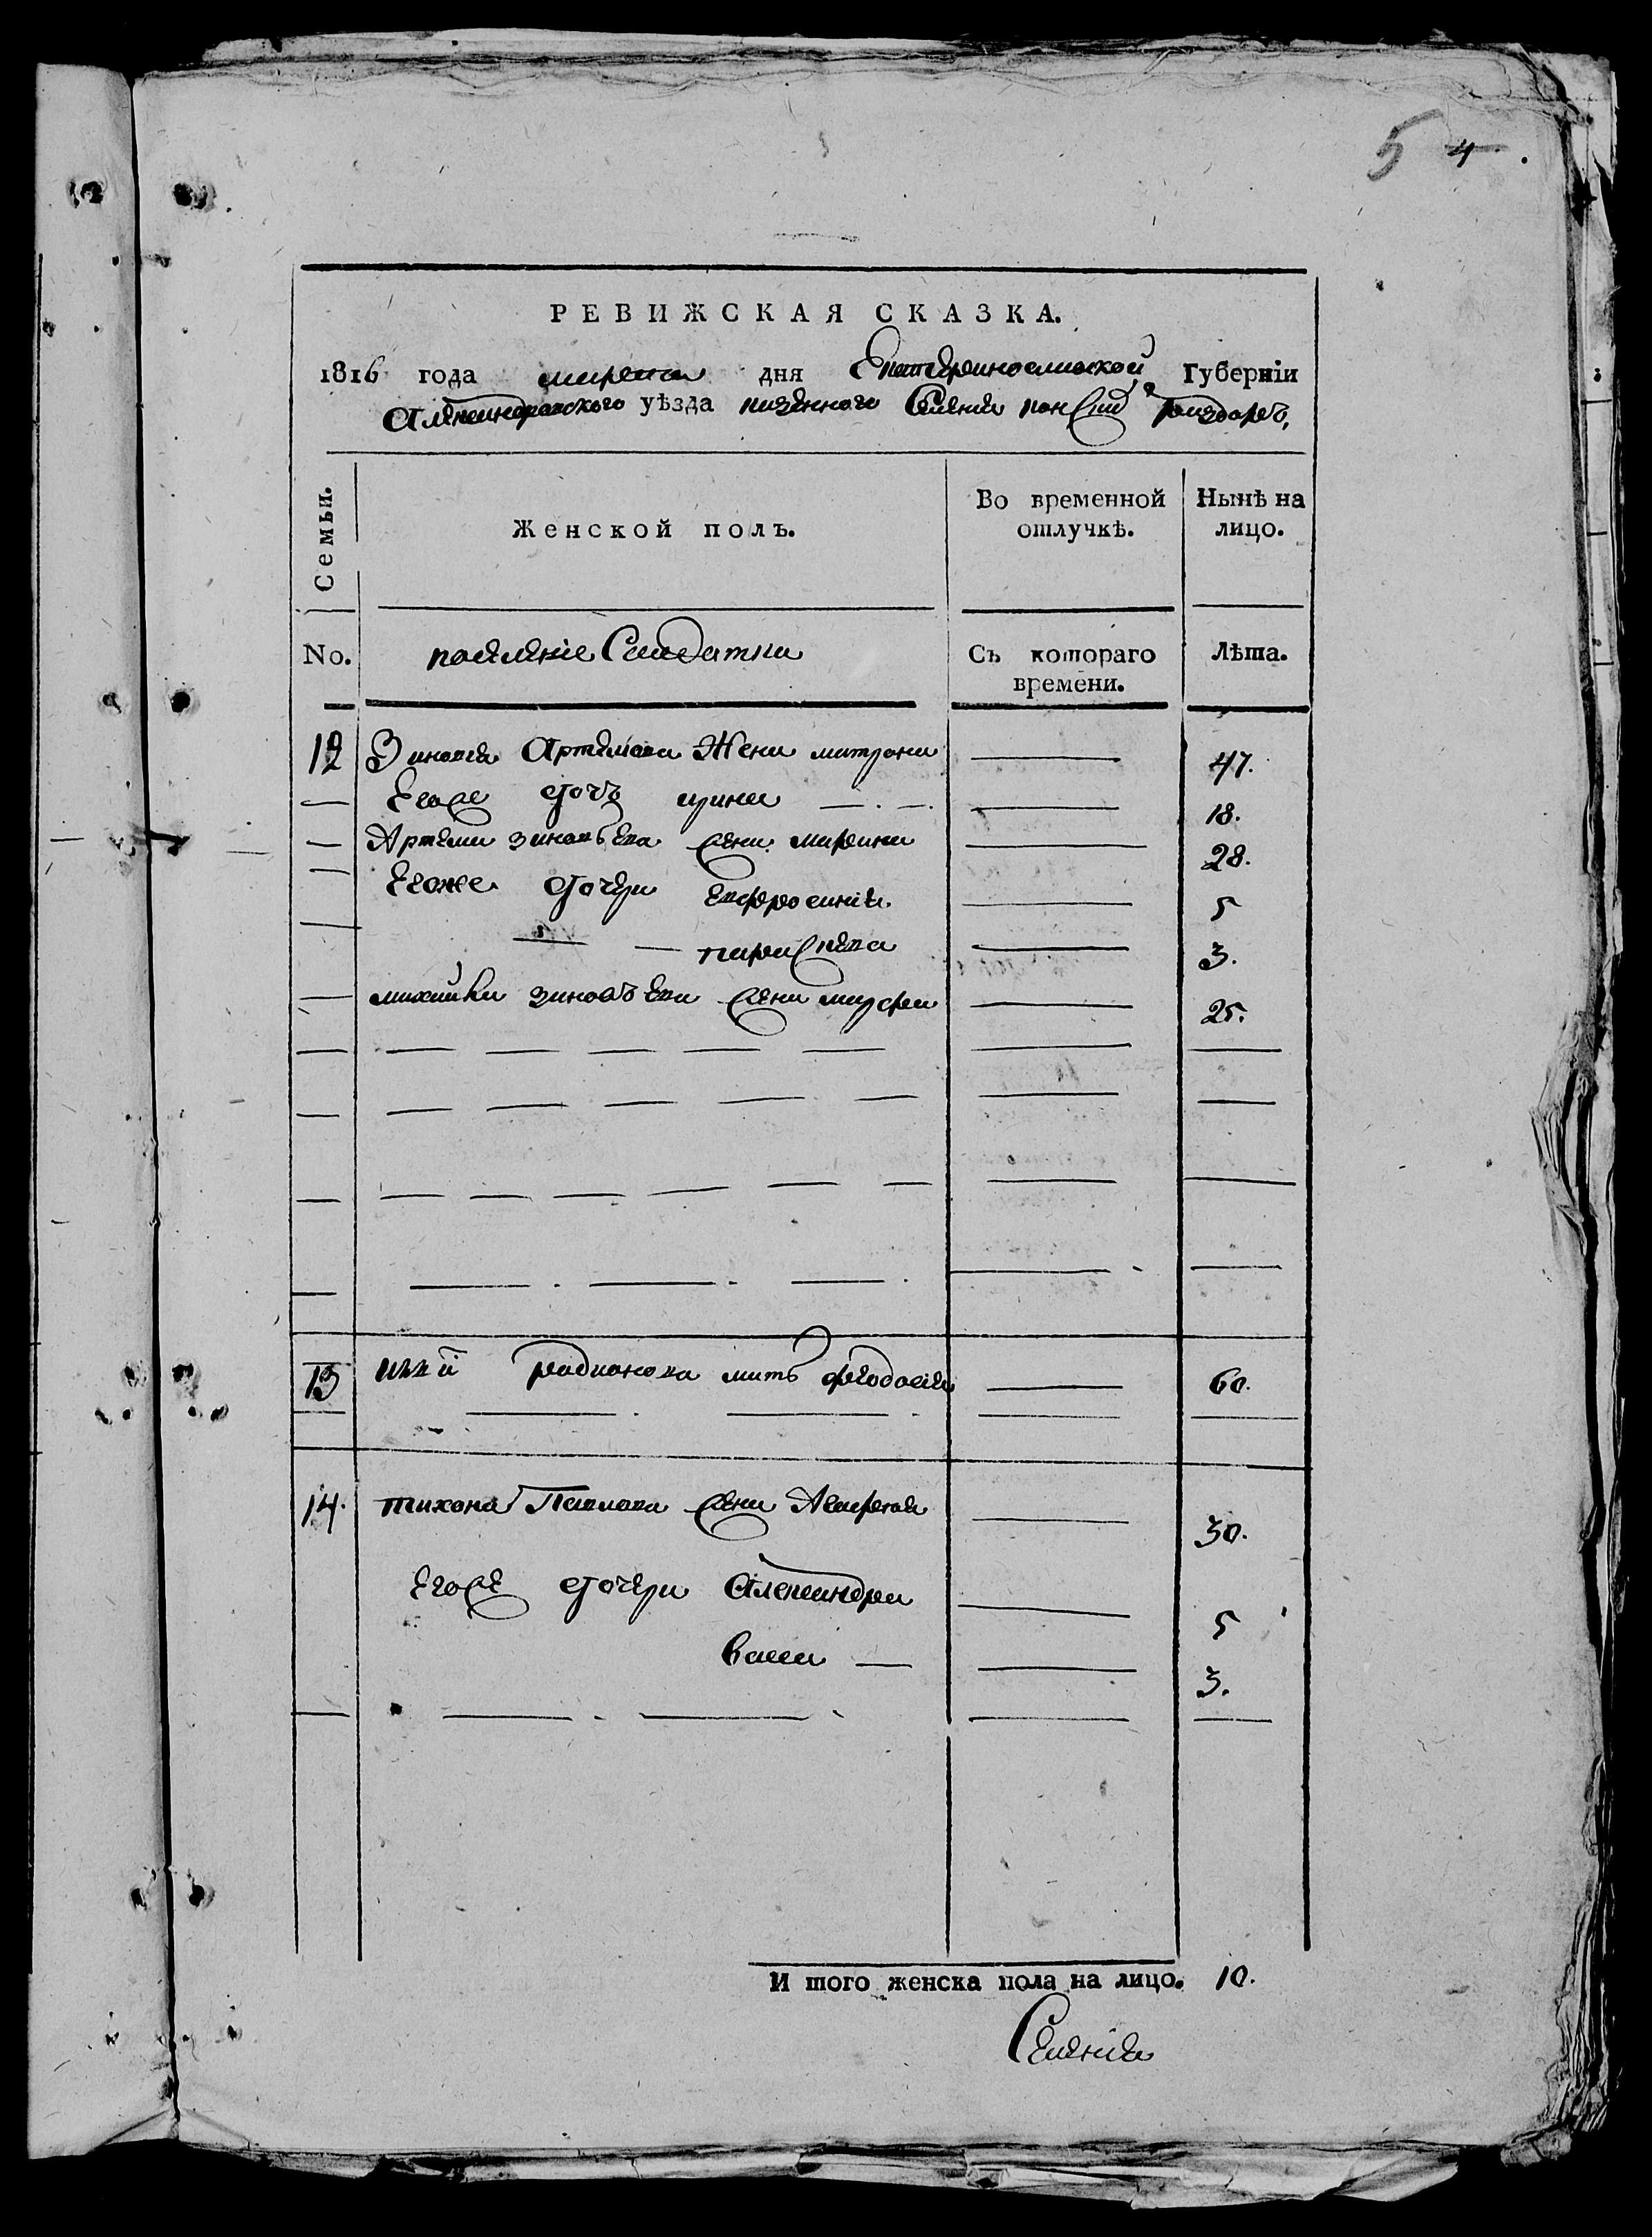 5 4
РЕВИЖСКАЯ СКАЗКА.
1816 года марта дня Екатеринославской Губерніи
Александравского уѣзда казенного Селения
Семьи.
Женской полъ.
Во временной отлучкѣ.
Нынѣ на лицо.
No.
Съ котораго времени.
Лѣта.
12 Зиновея Артемова Жена матрона 47.
Егоже дочь ирина 18.
Артема зиновьева жена марина 28.
Егоже дочери Евфросиния 5
параскева 3.
михайла зиновъева жена марфа 25.
13 радионова мать феодосия 60.
14. тихона Павлова жена Агафия 30.
Егоже дочери Александра 5
васса 3.
И того женска пола на лицо. 10.
Селения